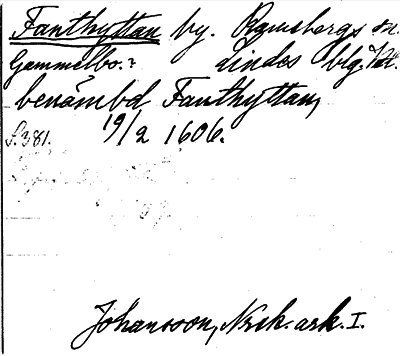 Fanthyttan by. Ramsbergs sn.
Gammelbo.? Lindes blg. Vstm.
benämbd Fanthyttan,
S.381. 19/2 1606.
Johansson, Nrsk. ark. I.